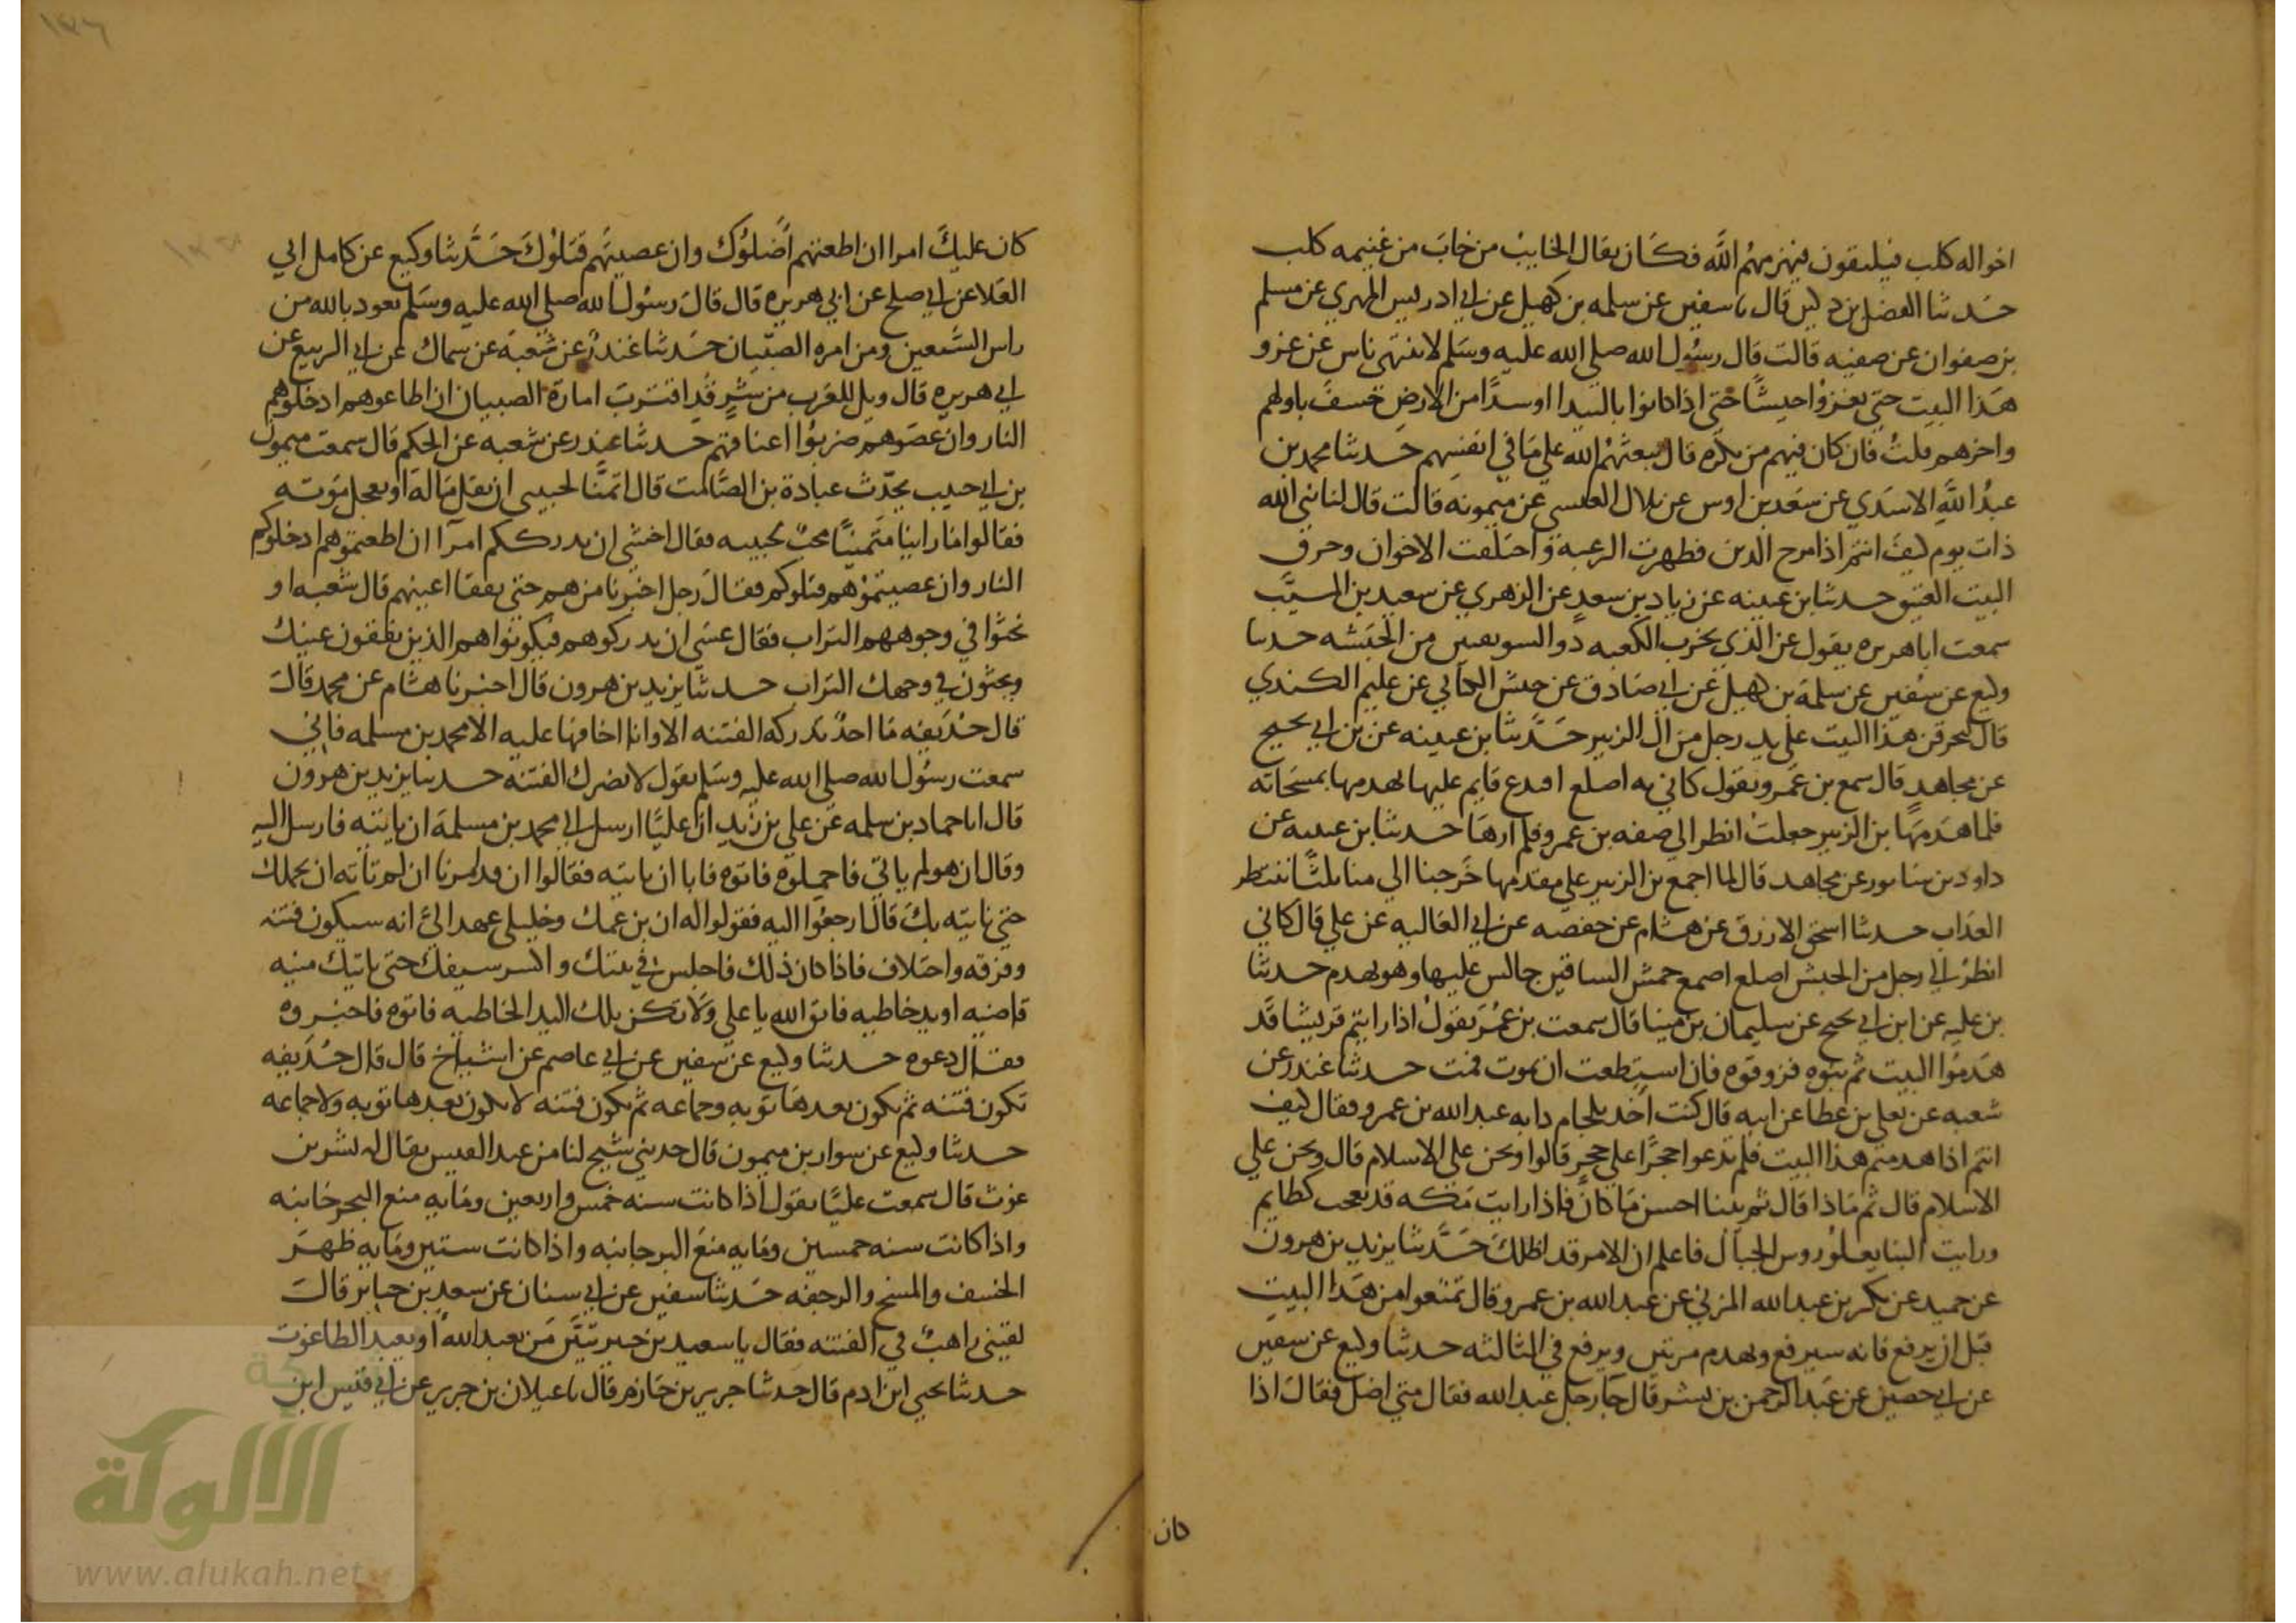 اخواله كلب فيلتقون فيهزمهم الله فكان يقال الخايب من خاب من غنيمه كلب
حدثنا الفضل بن دكين قال نا سفين عن سلمه بن كهيل عن ابي ادريس المرهبي عن مسلم
بن صفوان عن صفيه قالت قال رسول الله صلى الله عليه وسلم لا ينتهي ناس عن غزو
هذا البيت حتى يغزوا جيشا حتى اذا كانوا بالبيدا او بيدا من الارض خسف باولهم
واخرهم قلت فان كان فيهم من يكره قال يبعثهم الله على ما في انفسهم حدثنا محمد بن
عبد الله الاسدي عن سعد بن اوس عن بلال العبسي عن ميمونه قالت قال لنا نبي الله
ذات يوم كيف انتم اذا مرج الدين فظهرت الرغبة واختلفت الاخوان وحرق
البيت العتيق حدثنا بن عيينه عن زياد بن سعد عن الزهري عن سعيد بن المسيب
سمعت ابا هريره يقول عن الذي يخرب الكعبه ذو السويقتين من الحبشه حدثنا
وكيع عن سفين عن سلمة بن كهيل عن ابي صادق عن حنش الكناني عن عليم الكندي
قال ليحرقن هذا البيت على يد رجل من ال الزبير حدثنا بن عيينه عن بن ابي نجيح
عن مجاهد قال سمع بن عمرو يقول كاني به اصلع افدع قايم عليها يهدمها بمسحاته
فلما هدمها بن الزبير جعلت انظر الى صفه بن عمرو فلم ارها حدثنا بن عيينه عن
داود بن شابور عن مجاهد قال لما اجمع بن الزبير على هدمها خرجنا الى منا ثلثا ننتظر
العذاب حدثنا اسحق الازرق عن هشام عن حفصه عن ابي العاليه عن علي قال كاني
انظر الى رجل من الحبش اصلع اصمع حمش الساقين جالس عليها وهو يهدم حدثنا
بن عليه عن ابن ابي نجيح عن سليمان بن مينا قال سمعت بن عمر يقول اذا رايتم قريشا قد
هدموا البيت ثم بنوه فزوقوه فان استطعت ان تموت فمت حدثنا غندر عن
شعبه عن يعلى بن عطا عن ابيه قال كنت اخذ بلجام دابه عبد الله بن عمرو فقال كيف
انتم اذا هدمتم هذا البيت فلم تدعوا حجرا على حجر قالوا ونحن على الاسلام قال ونحن على
الاسلام قال ثم ماذا قال ثم يبنا احسن ما كان فاذا رايت مكه قد بعجت كظايم
ورايت البنا يعلو روس الجبال فاعلم ان الامر قد اظلك حدثنا يزيد بن هرون
عن حميد عن بكر بن عبد الله المزني عن عبد الله بن عمرو قال تمتعوا من هذا البيت
قبل ان يرفع فانه سيرفع ويهدم مرتين ويرفع في الثالثه حدثنا وكيع عن سفين
عن ابي حصين عن عبد الرحمن بن بشر قال جا رجل عبد الله فقال متى اضل فقال اذا
كان
كان عليك امرا ان اطعتهم اضلوك وان عصيتهم قتلوك حدثنا وكيع عن كامل ابي
العلا عن ابي صلح عن ابي هريره قال قال رسول الله صلى الله عليه وسلم تعود بالله من
راس السبعين ومن امره الصبيان حدثنا غندر عن شعبه عن سماك عن ابي الربيع عن
ابي هريره قال ويل للعرب من شر قد اقترب امارة الصبيان ان اطاعوهم ادخلوهم
النار وان عصوهم ضربوا اعناقهم حدثنا غندر عن شعبه عن الحكم قال سمعت ميمون
بن ابي حبيب يحدث عن عبادة بن الصامت قال اتمنا لحبيبي ان يقل ماله او يعجل موته
فقالوا ما راينا متمنيا محب لحبيبه فقال اخشى ان يدرككم امرا ان اطعتموهم ادخلوكم
النار وان عصيتموهم قتلوكم فقال رجل اخبرنا من هم حتى نفقا اعينهم قال شعبه او
نحثوا في وجوههم التراب فقال عسى ان تدركوهم فيكونوا هم الذين يفقون عينك
ويحثون في وجهك التراب حدثنا يزيد بن هرون قال اخبرنا هشام عن محمد قال
قال حذيفه ما احد تدركه الفتنه الا وانا اخافها عليه الا محمد بن مسلمه فاني
سمعت رسول الله صلى الله عليه وسلم يقول لا تضرك الفتنه حدثنا يزيد بن هرون
قال انا حماد بن سلمه عن علي بن زيد ان عليا ارسل الى محمد بن مسلمة ان ياتيه فارسل اليه
وقال ان هو لم ياتي فاحملوه فاتوه فابا ان ياتيه فقالوا ان قد امرنا ان لم تاته ان نحملك
حتى ناتيه بك قال ارجعوا اليه فقولوا له ان بن عمك وخليلي عهد الي انه سيكون فتنه
وفرقه واختلاف فاذا كان ذلك فاجلس في بيتك واكسر سيفك حتى ياتيك منيه
قاضيه او يد خاطيه فاتق الله يا علي ولا تكن تلك اليد الخاطيه فاتوه فاخبروه
فقال دعوه حدثنا وكيع عن سفين عن ابي عاصم عن اشياخ قال قال حذيفه
تكون فتنه ثم تكون بعدها توبه وجماعه ثم تكون فتنه لا تكون بعدها توبه ولا جماعه
حدثنا وكيع عن سوار بن ميمون قال حدثني شيخ لنا من عبد القيس يقال له بشر بن
غوث قال سمعت عليا يقول اذا كانت سنه خمس واربعين ومايه منع البحر جانبه
واذا كانت سنه خمسين ومايه منع البر جانبه واذا كانت ستين ومايه ظهر
الخسف والمسخ والرجفه حدثنا سفين عن ابي سنان عن سعيد بن جبير قال
لقيني راهب في الفتنه فقال يا سعيد بن جبير تبين من يعبد الله او يعبد الطاغوت
حدثنا يحيى ابن ادم قال حدثنا جرير بن حازم قال نا غيلان بن جرير عن ابي قيس ابن
الألوكة
www.alukah.net